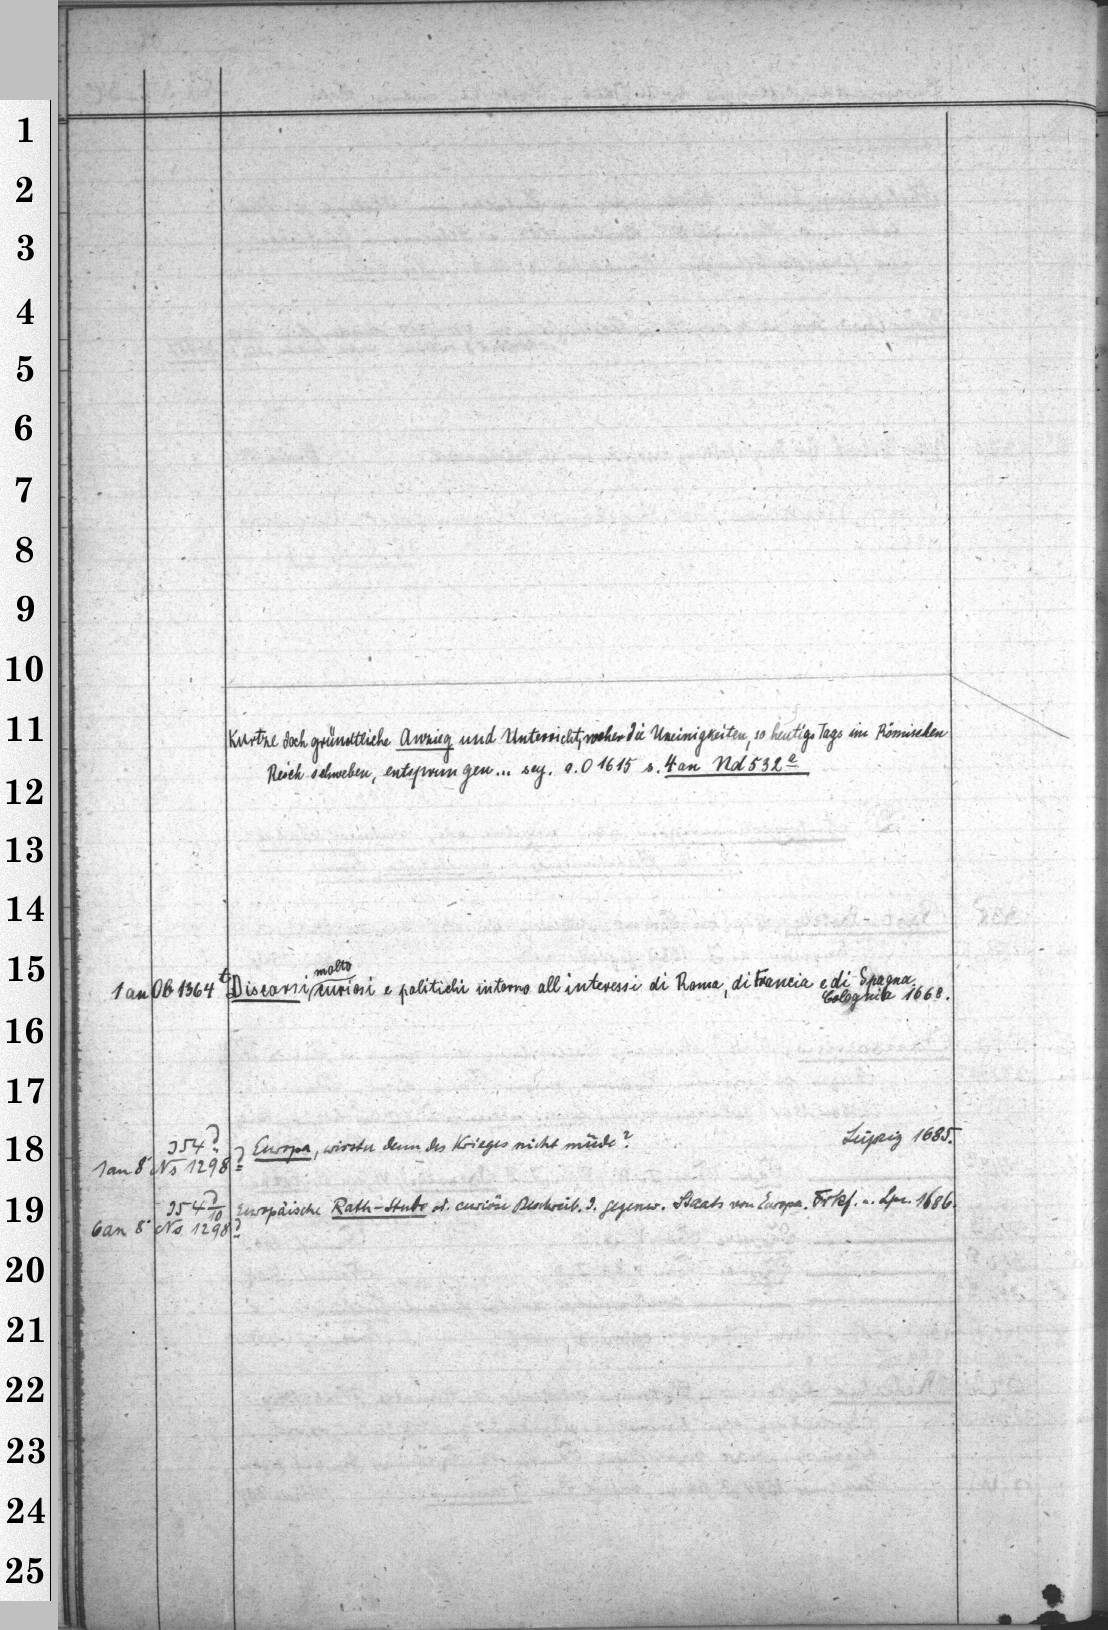 1
2
3
4
5
6
7
8
9
10
11
Kurtze doch gründtliche Anzeig und Unterricht, woher die Uneinigkeiten, so heutigs Tags im Römischen
Reich schweben, entsprungen... sey. o.O 1615 s. 4 an Nd 532 e
12
13
14
15
molto
1 an Ob 1364 t Discorsi curiosi e politichi intorno all interessi di Roma, di Francia e di Spagna.
Colognia 1668.
16
17
18
354? Europa, wirstu denn des Krieges nicht müde? Leipzig 1685.
1 an 8° Ns 1298?
19
354?/10 Europäische Rath-Stube od. curiöse Beschreib. d. gegenw. Staats von Europa. Frkf. u. Lpz. 1686.
6 an 8° Ns 1298?
20
21
22
23
24
25